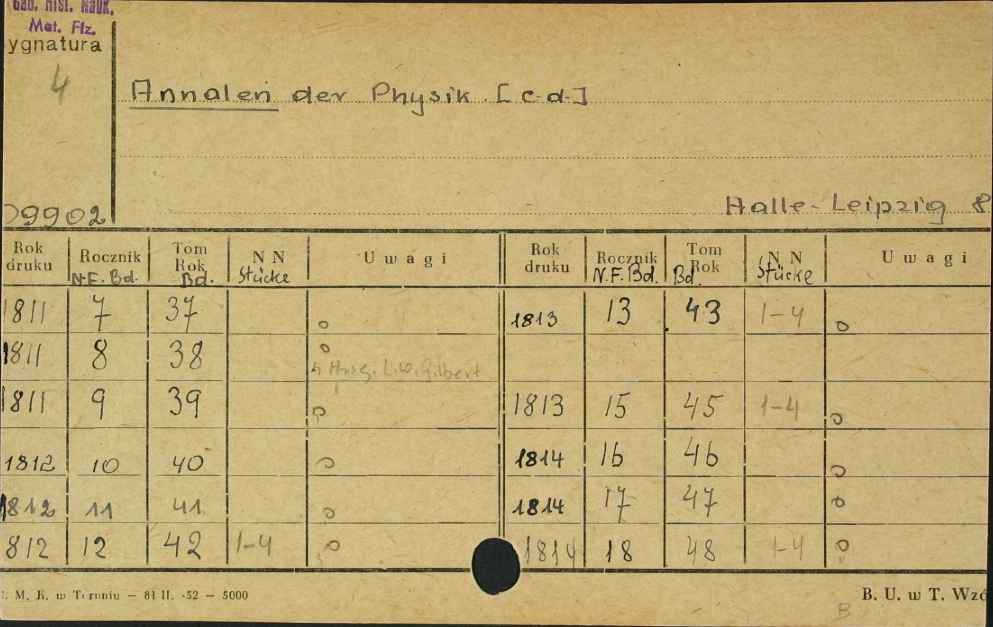 Gab. Hist. Nauk.
Mat. Fiz.
ygnatura
4
Annalen der Physik [c.d.]
09902
Halle-Leipzig 8
Rok druku Rocznik N.F. Bd. Tom Rok Bd. N N Stücke U w a g i Rok druku Rocznik N.F. Bd. Tom Rok Bd. N N Stücke U w a g i
1811 7 37 o 1813 13 43 1-4 o
1811 8 38 o Hrsg. L.W. Gilbert
1811 9 39 o 1813 15 45 1-4 o
1812 10 40 o 1814 16 46 o
1812 11 41 o 1814 17 47 o
812 12 42 1-4 o 1814 18 48 1-4 o
. M. K. w Toruniu — 81 II. -52 — 5000
B. U. w T. Wzó
B